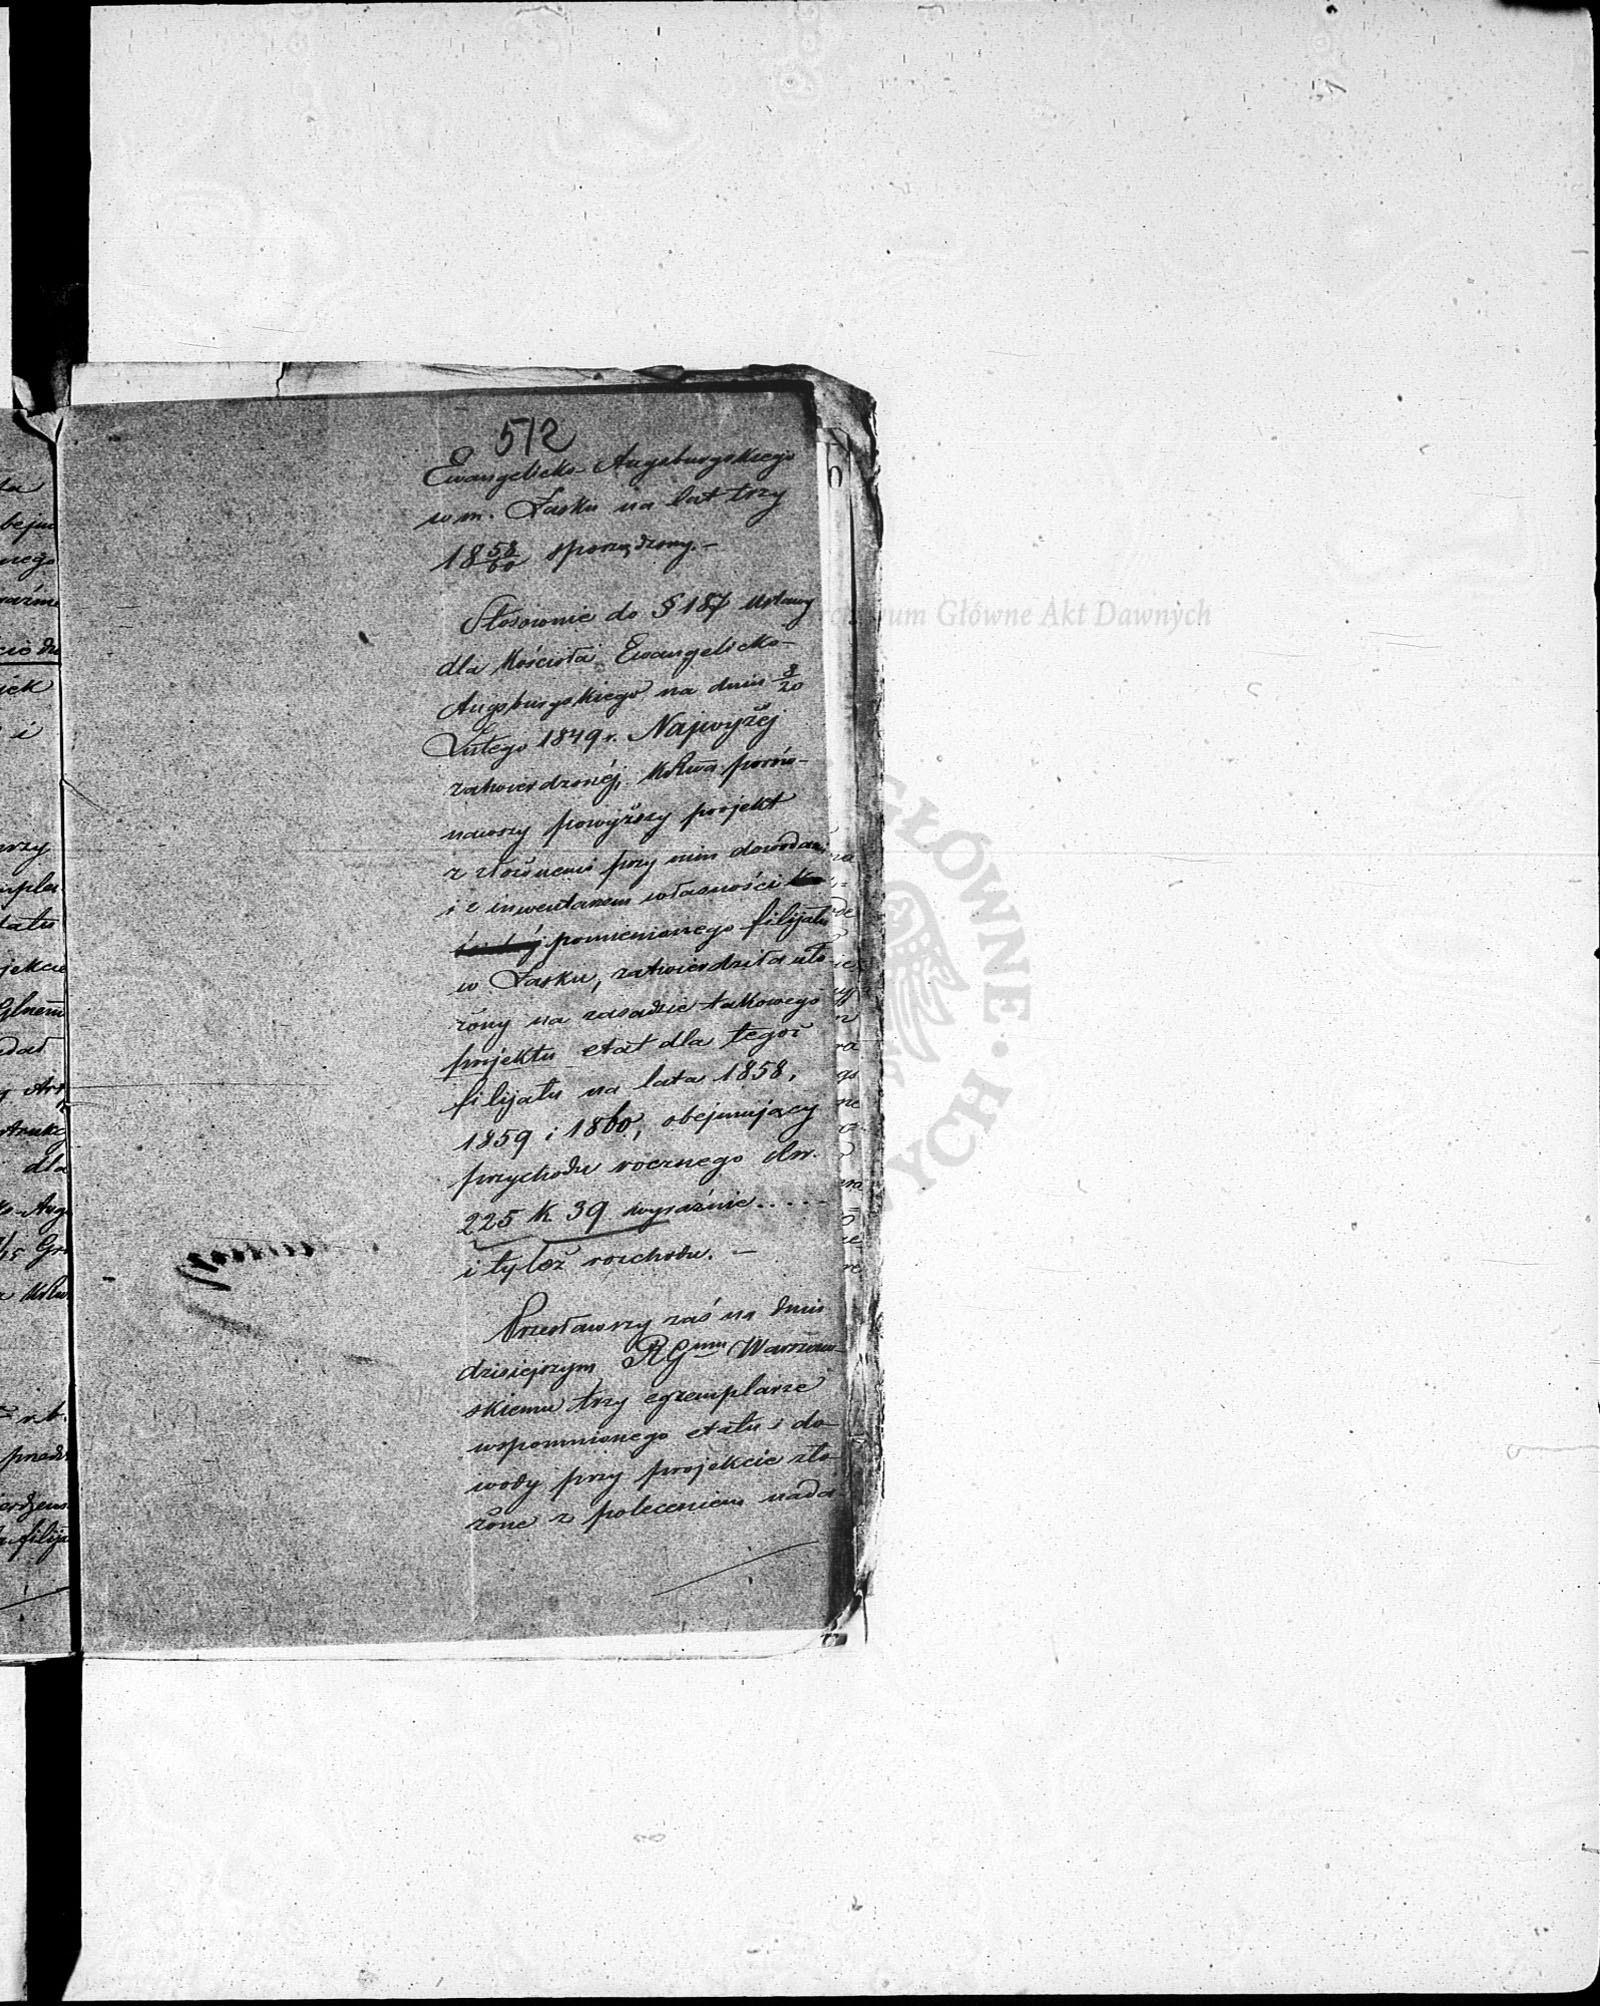 512
Ewangelicko-Augsburgskiego
w m. Łasku na lat trzy
18 58/60 sporządzony.-
Stosownie do § 187 Ustawy
dla Kościoła Ewangelicko-
Augsburgskiego na dniu 8/20
Lutego 1849 r. Najwyżéj
zatwierdzonéj, KRwa porów-
nawszy powyższy projekt
z złożonemi przy nim dowodami
i z inwentarzem własności
pomienionego filijału
w Łasku, zatwierdziła uło-
żony na zasadzie takowego
projektu etat dla tegoż
filijału na lata 1858,
1859 i 1860, obejmujący
przychodu rocznego
225 k. 39 wyraźnie.....
i tyleż rozchodu. -
Przesławszy zaś na dniu
dzisiejszym RGmu Warszaw-
skiemu trzy egzemplarze
wspomnionego etatu i do-
wody przy projekcie zło-
żone z poleceniem nada
Archiwum Główne Akt Dawnych
GŁÓWNE